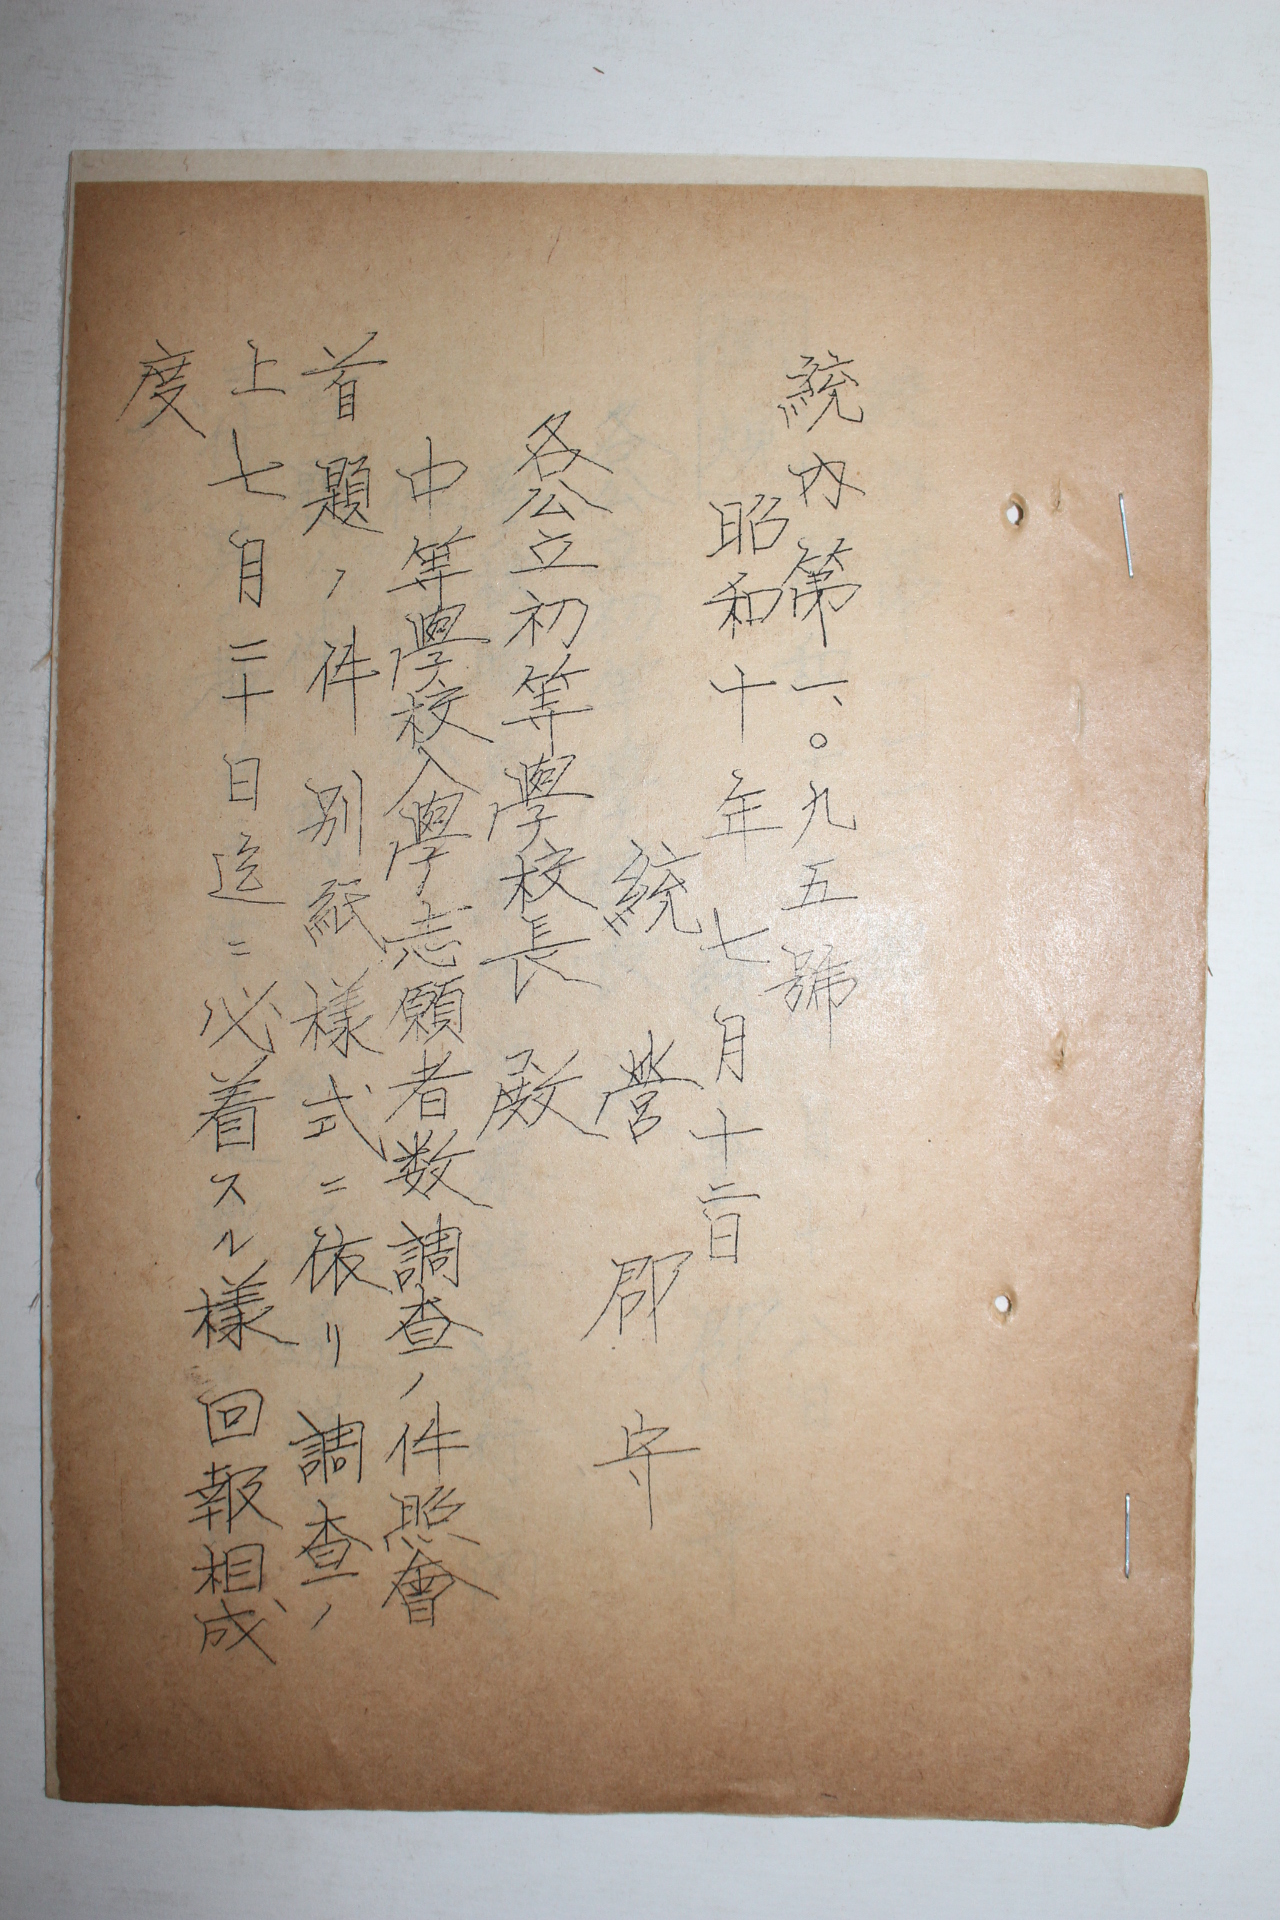 統内第一、〇九五號
昭和十年七月十二日
統營郡守
各公立初等學校長殿
中等學校入學志願者数調査ノ件照會
首題ノ件別紙様式ニ依リ調査ノ
上七月二十日迄ニ必着スル様回報相成
度